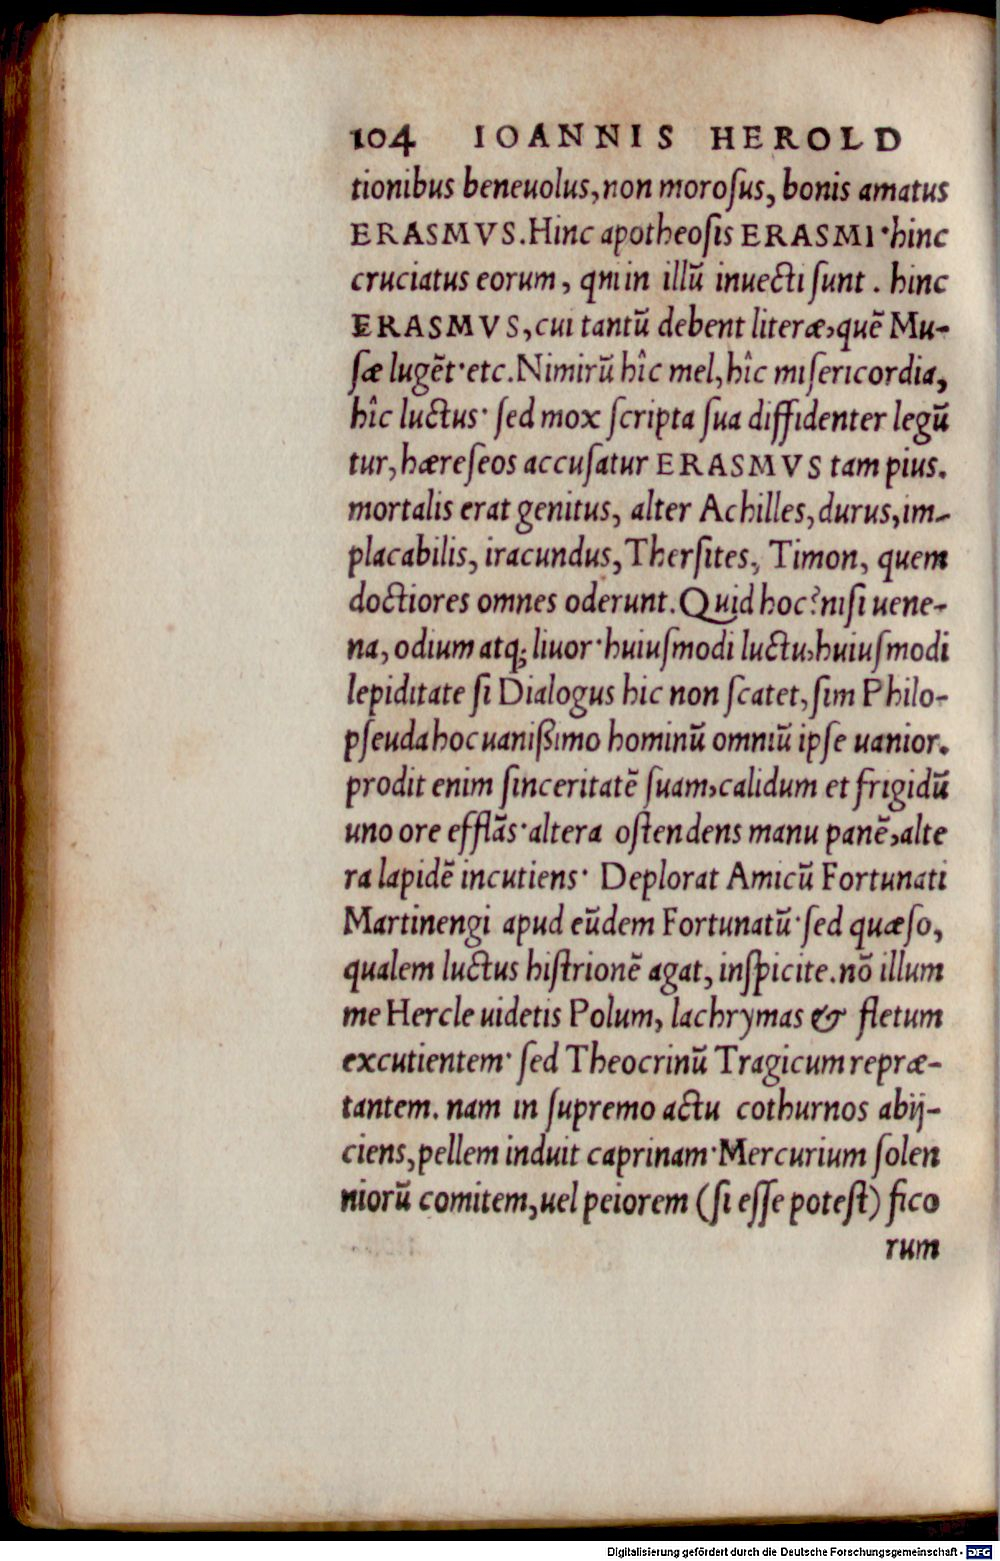 104 IOANNIS HEROLD
tionibus beneuolus, non moroſus, bonis amatus
ERASMVS. Hinc apotheoſis ERASMI· hinc
cruciatus eorum, qni in illū inuecti ſunt. hinc
ERASMVS, cui tantū debent literæ, quē Mu-
ſæ lugēt· etc. Nimirū hîc mel, hîc miſericordia,
hîc luctus· ſed mox ſcripta ſua diffidenter legū
tur, hæreſeos accuſatur ERASMVS tam pius.
mortalis erat genitus, alter Achilles, durus, im-
placabilis, iracundus, Therſites, Timon, quem
doctiores omnes oderunt. Quid hoc? niſi uene-
na, odium atq; liuor· huiuſmodi luctu, huiuſmodi
lepiditate ſi Dialogus hic non ſcatet, ſim Philo-
pſeuda hoc uanißimo hominū omniū ipſe uanior.
prodit enim ſinceritatē ſuam, calidum et frigidū
uno ore efflās· altera oſtendens manu panē, alte
ra lapidē incutiens· Deplorat Amicū Fortunati
Martinengi apud eūdem Fortunatū· ſed quæſo,
qualem luctus hiſtrionē agat, inſpicite. nō illum
me Hercle uidetis Polum, lachrymas & fletum
excutientem· ſed Theocrinū Tragicum repræ-
tantem. nam in ſupremo actu cothurnos abij-
ciens, pellem induit caprinam· Mercurium ſolen
niorū comitem, uel peiorem (ſi eſſe poteſt) fico
rum
Digitalisierung gefördert durch die Deutsche Forschungsgemeinschaft - DFG